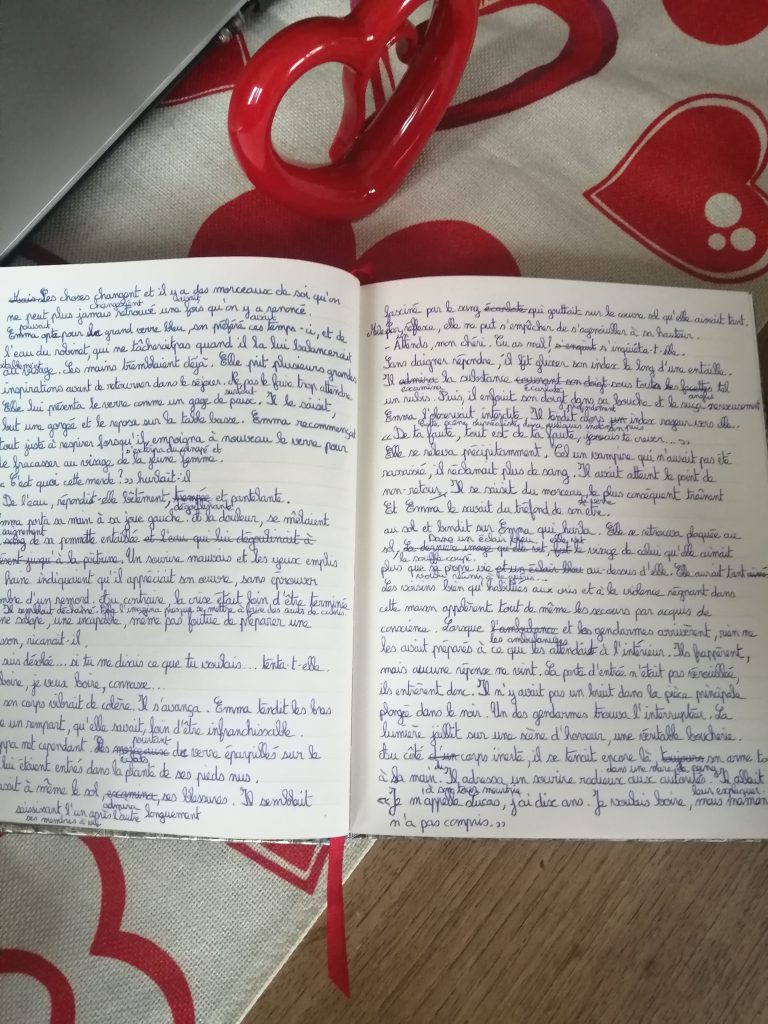 Mais Les choses changent et il y a des morceaux de soi qu'on
changeaient avait
ne peut plus jamais retrouvé une fois qu'on y a renoncé.
pouvait avait
Emma opta pour le grand verre bleu, son préféré ces temps-ci, et de
l'eau du robinet, qui ne tâcherait pas quand il la lui balancerait
au visage. Ses mains tremblaient déjà. Elle prit plusieurs grandes
inspirations avant de retourner dans le séjour. Ne pas le faire trop attendre
surtout
Elle lui présenta le verre comme un gage de paix. Il le saisit,
but une gorgée et le reposa sur la table basse. Emma recommençait
tout juste à respirer lorsqu'il empoigna à nouveau le verre pour
le fracasser au visage de la jeune femme.
« C'est quoi cette merde ? » hurlait-il
De l'eau, répondit-elle bêtement, trempée et pantelante.
dégoulinante
Emma porta sa main à sa joue gauche. À la douleur, se mêlaient
sang de sa pommette entaillée et l'eau qui lui dégoulinait à
présent jusqu'à la poitrine. Un sourire mauvais et les yeux emplis
haine indiquaient qu'il appréciait son œuvre, sans éprouver
ombre d'un remord. Au contraire, la crise était loin d'être terminée.
Il semblait déchaîné. Elle l'imagina presque se mettre à faire des sauts de cabris.
ne salope, une incapable, même pas foutue de préparer une
son, ricanait-il.
suis désolée... si tu me disais ce que tu voulais... tenta-t-elle.
boire, je veux boire, connasse...
son corps vibrait de colère. Il s'avança. Emma tendit les bras
e un rempart, qu'elle savait, loin d'être infranchissable.
pourtant
ppa net cependant. Des morceaux de verre éparpillés sur le
éclats
lui étaient entrés dans la plante de ses pieds nus.
à même le sol, examina ses blessures. Il semblait
admira
saisissant l'un après l'autre longuement
fasciné par le sang écarlate qui gouttait sur le cœur sol qu'elle aimait tant.
réflexe, elle ne put s'empêcher de s'agenouiller à sa hauteur.
- Attends, mon chéri. Tu as mal ? s'enquit s'inquiéta-t-elle.
Sans daigner répondre, il fit glisser son index le long d'une entaille.
Il admira la substance coinant son doigt sous toutes les facettes tel
examina écarlate
un rubis. Puis, il enfouit son doigt dans sa bouche et le suça nerveusement
Emma l'observait interdite. Il tendit alors un index rageur vers elle.
« De ta faute, tout est de ta faute, jamais te crever... »
Elle se releva précipitamment. Tel un vampire, qui n'aurait pas été
rassasié, il réclamait plus de sang. Il avait atteint le point de
non-retour. Il se saisit du morceau le plus conséquent traînant
Et Emma le savait du tréfond de son être.
au sol et bondit sur Emma qui hurla. Elle se retrouva plaquée au
Dans un éclair bleu, elle vit
sol. La dernière image qu'elle vit, fut le visage de celui qu'elle aimait
le souffle coupé.
plus que sa propre vie et un éclair bleu au-dessus d'elle. Elle aurait tant aimé
Les voisins bien qu'habitués aux cris et à la violence régnant dans
cette maison appelèrent tout de même les secours par acquis de
conscience. Lorsque l'ambulance et les gendarmes arrivèrent, rien ne
les ambulanciers
les avait préparés à ce qui les attendait à l'intérieur. Ils frappèrent,
mais aucune réponse ne vint. La porte d'entrée n'était pas verrouillée,
ils entrèrent donc. Il n'y avait pas un bruit dans la pièce principale
plongé dans le noir. Un des gendarmes trouva l'interrupteur. La
lumière jaillit sur une scène d'horreur, une véritable boucherie.
Au côté d'un corps inerte, il se tenait encore là toujours son arme
dans une mare de sang
à la main. Il adressa un sourire radieux aux autorités. Il allait
leur expliquer.
« Je m'appelle Lucas, j'ai dix ans. Je voulais boire, mais maman
n'a pas compris. »